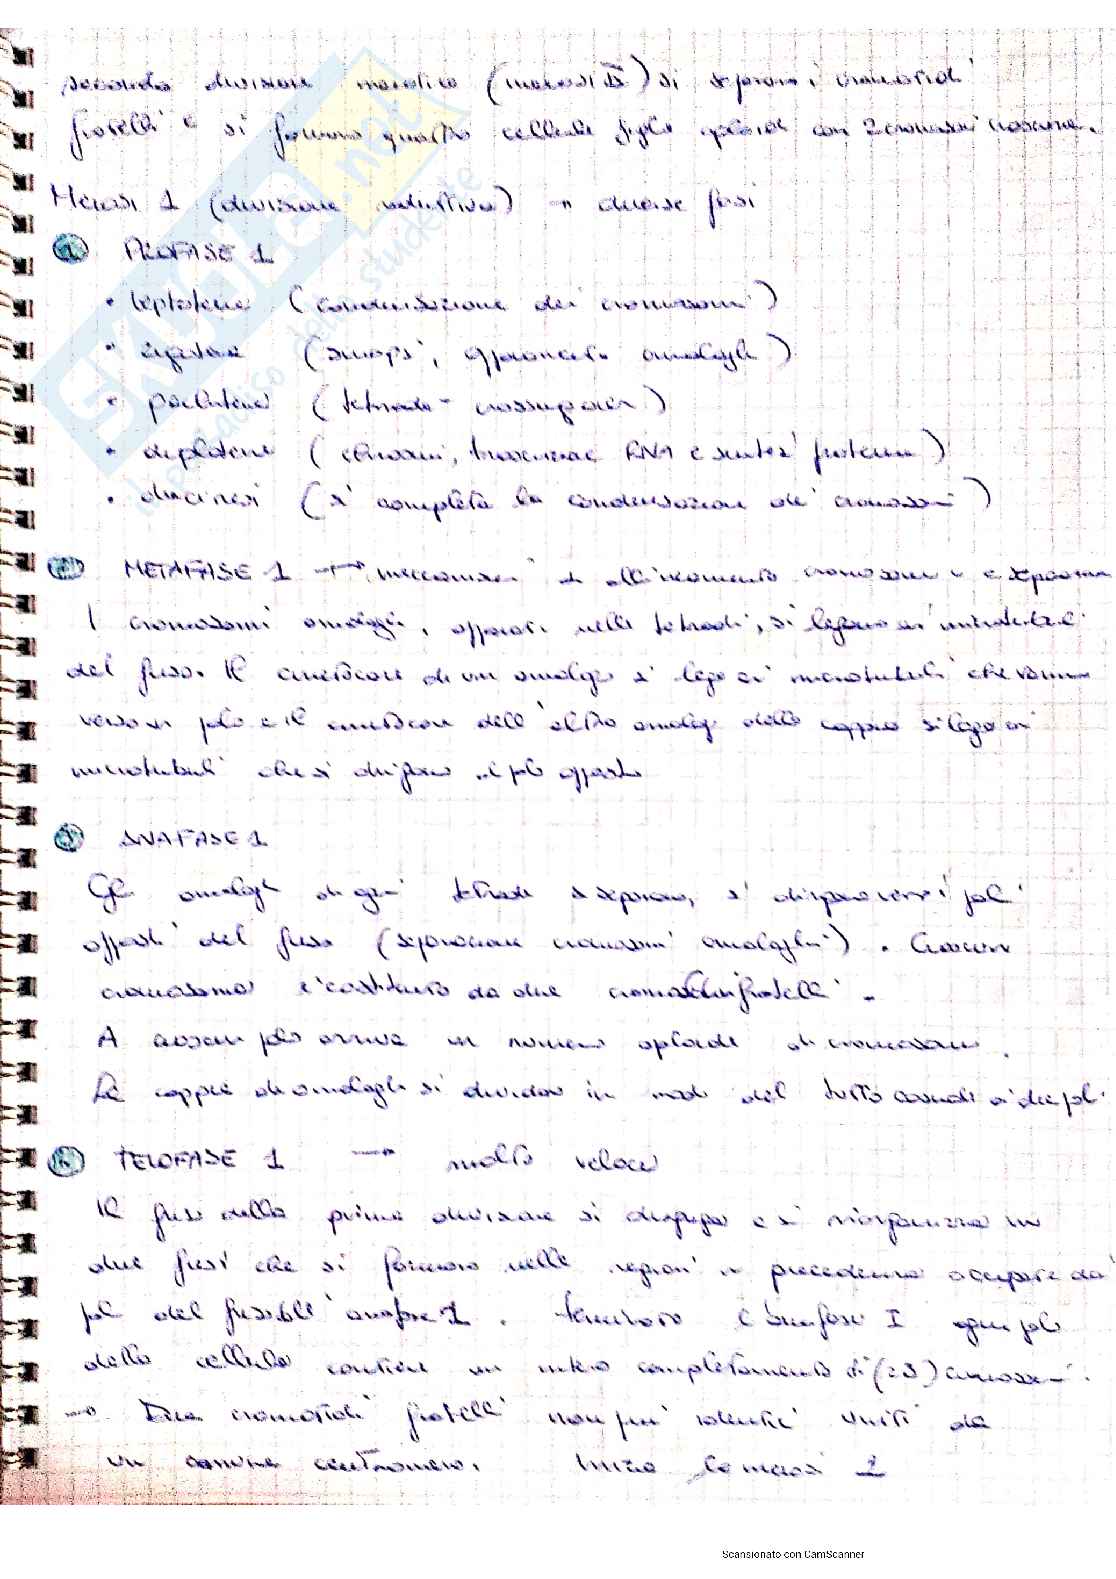 seconda divisione meiotica (meiosi II) si separano i cromatidi
fratelli e si formano quattro cellule figlie aploidi con 23 cromosomi
Meiosi 1 (divisione riduttiva) → diverse fasi
1 PROFASE 1
• leptotene (condensazione dei cromosomi)
• zigotene (sinapsi, omologhi)
• pachitene (tetrade - crossing over)
• diplotene (chiasmi, trascrizione RNA e sintesi proteine)
• diacinesi (si completa la condensazione dei cromosomi)
2 METAFASE 1 → allineamento cromosomi
I cromosomi omologhi, appaiati nelle tetradi, si legano ai microtubuli
del fuso. Il cinetocore di un omologo si lega ai microtubuli che vanno
verso un polo e il cinetocore dell'altro omologo della coppia si lega ai
microtubuli che si dirigono al polo opposto
3 ANAFASE 1
Gli omologhi di ogni tetrade si separano, si dirigono verso i poli
opposti del fuso (separazione cromosomi omologhi). Ciascun
cromosoma è costituito da due cromatidi fratelli.
A ciascun polo arriva un numero aploide di cromosomi.
Le coppie di omologhi si dividono in modo del tutto casuale ai due poli
4 TELOFASE 1 → molto veloce
Il fuso della prima divisione si disgrega e si riorganizza in
due fusi che si formano nelle regioni in precedenza occupate dai
poli del fuso dell'anafase 1. l'anafase I ogni polo
della cellula contiene un intero di (23) cromosomi.
→ Due cromatidi fratelli non più identici uniti da
un comune centromero. Inizia la meiosi 2
SKUOLA.net
il paradiso dello studente
Scansionato con CamScanner